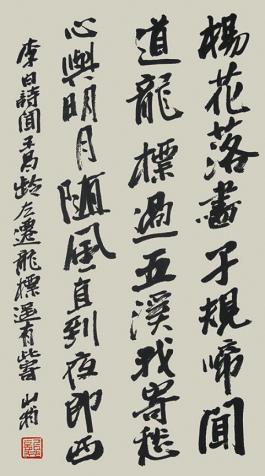 楊花落盡子規啼聞
道龍標過五溪我寄愁
心與明月隨風直到夜郎西
李白詩聞王昌齡左遷龍標遙有此寄 山